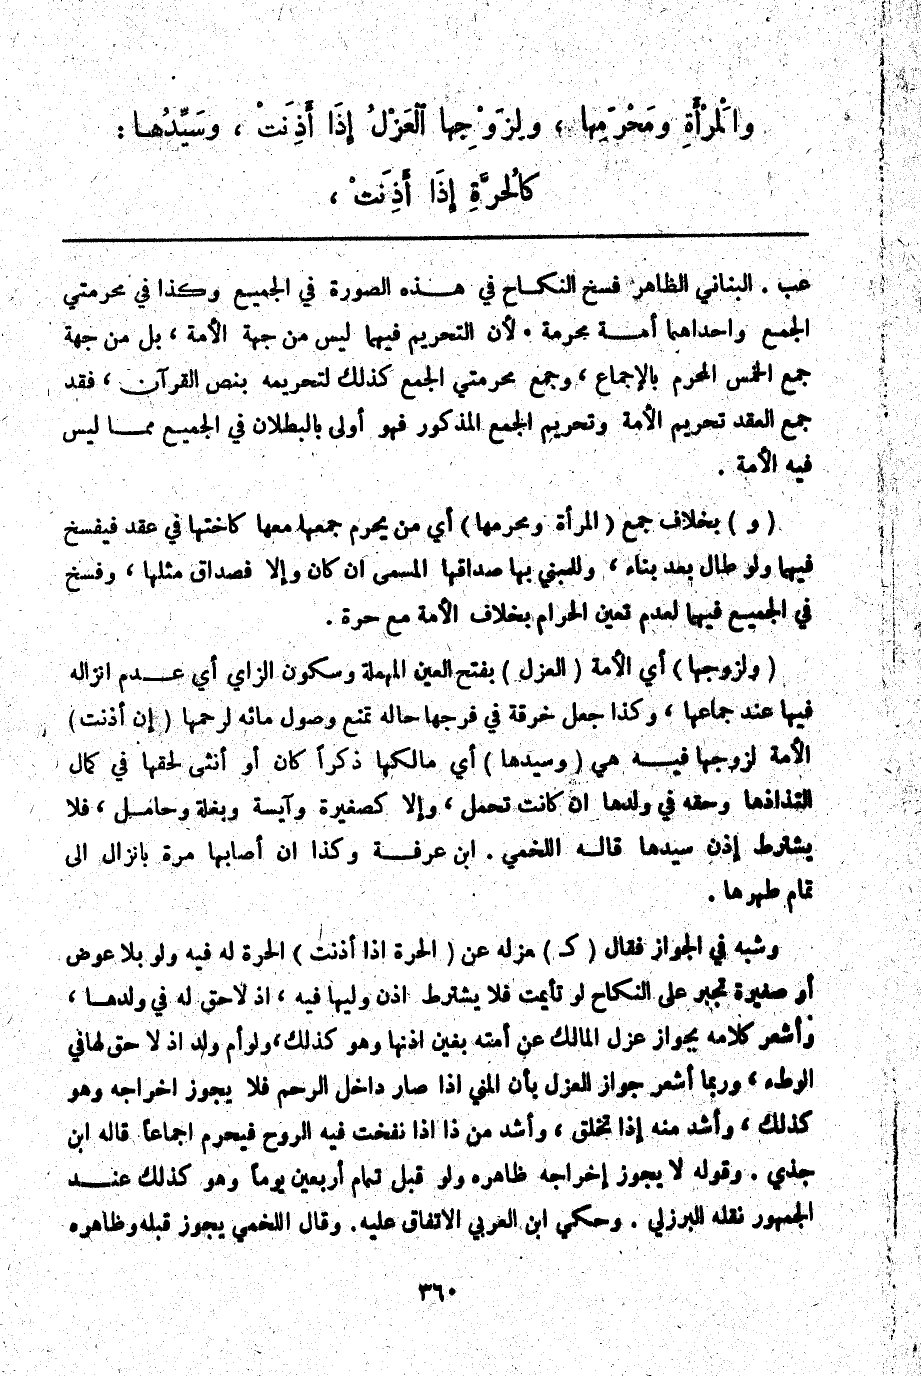 والْمَرْأَةِ ومَحْرَمِها ، ولِزَوْجِها ٱلْعَزْلُ إِذَا أَذِنَتْ ، وسَيِّدُهـا :
كالْحُرَّةِ إِذَا أَذِنَتْ ،
عب . البناني الظاهر فسخ النكـاح في هـذه الصورة في الجميع وكذا في محرمتي
الجمع واحداهما أمـة محرمة . لأن التحريم فيهما ليس من جهة الأمة ، بل من جهة
جمع الخمس المحرم بالإجماع ، وجمع محرمتي الجمع كذلك لتحريمه بنص القرآن ، فقد
جمع العقد تحريم الأمة وتحريم الجمع المذكور فهو أولى بالبطلان في الجميع ممـا ليس
فيه الأمة .
( و ) بخلاف جمع ( المرأة ومحرمها ) أي من يحرم جمعها معها كاختها في عقد فيفسخ
فيهما ولو طال بعد بناء ، وللمبني بها صداقها المسمى ان كان وإلا فصداق مثلها ، وفسخ
في الجميع فيهما لعدم تعين الحرام بخلاف الأمة مع حرة .
( ولزوجها ) أي الأمة ( العزل ) بفتح العين المهملة وسكون الزاي أي عـدم انزاله
فيها عند جماعها ، وكذا جعل خرقة في فرجها حاله تمنع وصول مائه لرحمها ( إن أذنت )
الأمة لزوجها فيـه هي ( وسيدها ) أي مالكها ذكراً كان أو أنثى لحقها في كمال
التذاذها وحقه في ولدها ان كانت تحمل ، وإلا كصغيرة وآيسة وبغلة وحامـل ، فلا
يشترط إذن سيدها قالـه اللخمي . ابن عرفـة وكذا ان أصابها مرة بانزال الى
تمام طهرها .
وشبه في الجواز فقال ( كـ ) عزله عن ( الحرة اذا أذنت ) الحرة له فيه ولو بلا عوض
أو صغيرة تجبر على النكاح لو تأيمت فلا يشترط اذن وليها فيه ، اذ لاحق له في ولدهـا ،
وأشعر كلامه بجواز عزل المالك عن أمته بغير اذنها وهو كذلك ، ولو أم ولد اذ لا حق لها في
الوطء ، وربما أشعر جواز العزل بأن المني اذا صار داخل الرحم فلا يجوز اخراجه وهو
كذلك ، وأشد منه إذا تخلق ، وأشد من ذا اذا نفخت فيه الروح فيحرم اجماعاً قاله ابن
جزي . وقوله لا يجوز إخراجه ظاهره ولو قبل تمام أربعين يوماً وهو كذلك عنـد
الجمهور نقله البرزلي . وحكي ابن العربي الاتفاق عليه . وقال اللخمي يجوز قبله وظاهره
٣٦٠